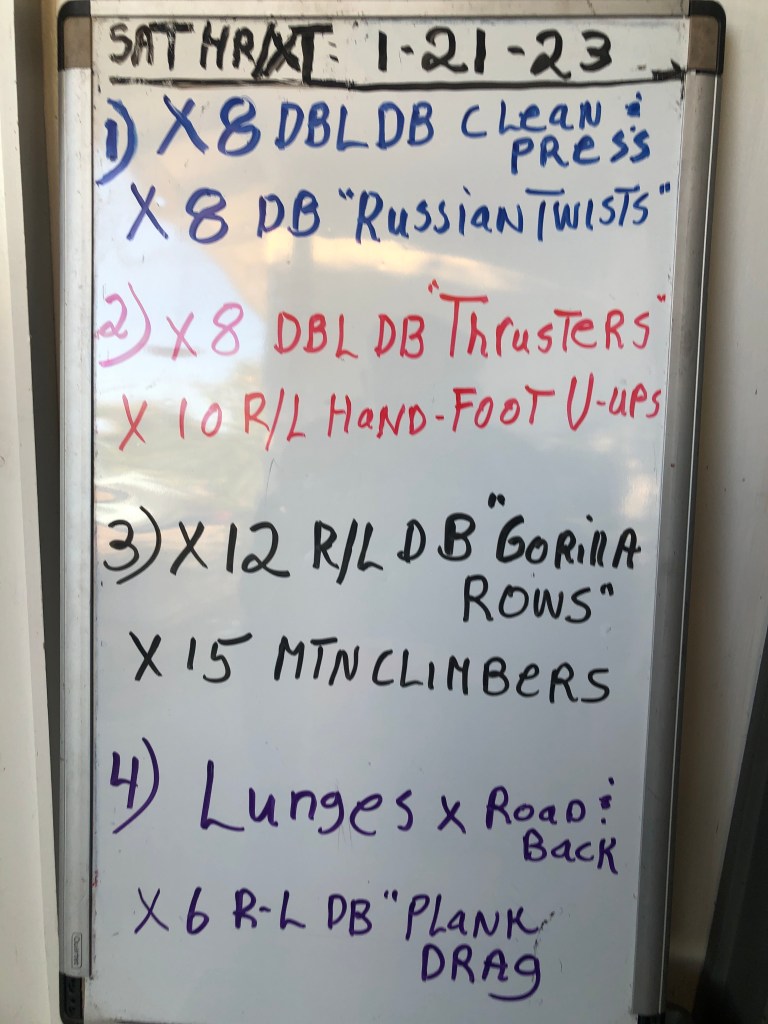 SAT HR/XT: 1-21-23
1) X 8 DBL DB CLEAN &
PRESS
X 8 DB "RUSSIAN TWISTS"
2) X 8 DBL DB "THRUSTERS"
X 10 R/L HAND-FOOT V-UPS
3) X 12 R/L DB "GORILLA
ROWS"
X 15 MTN CLIMBERS
4) Lunges X ROAD &
BACK
X 6 R-L DB "PLANK
DRAg
Quartet